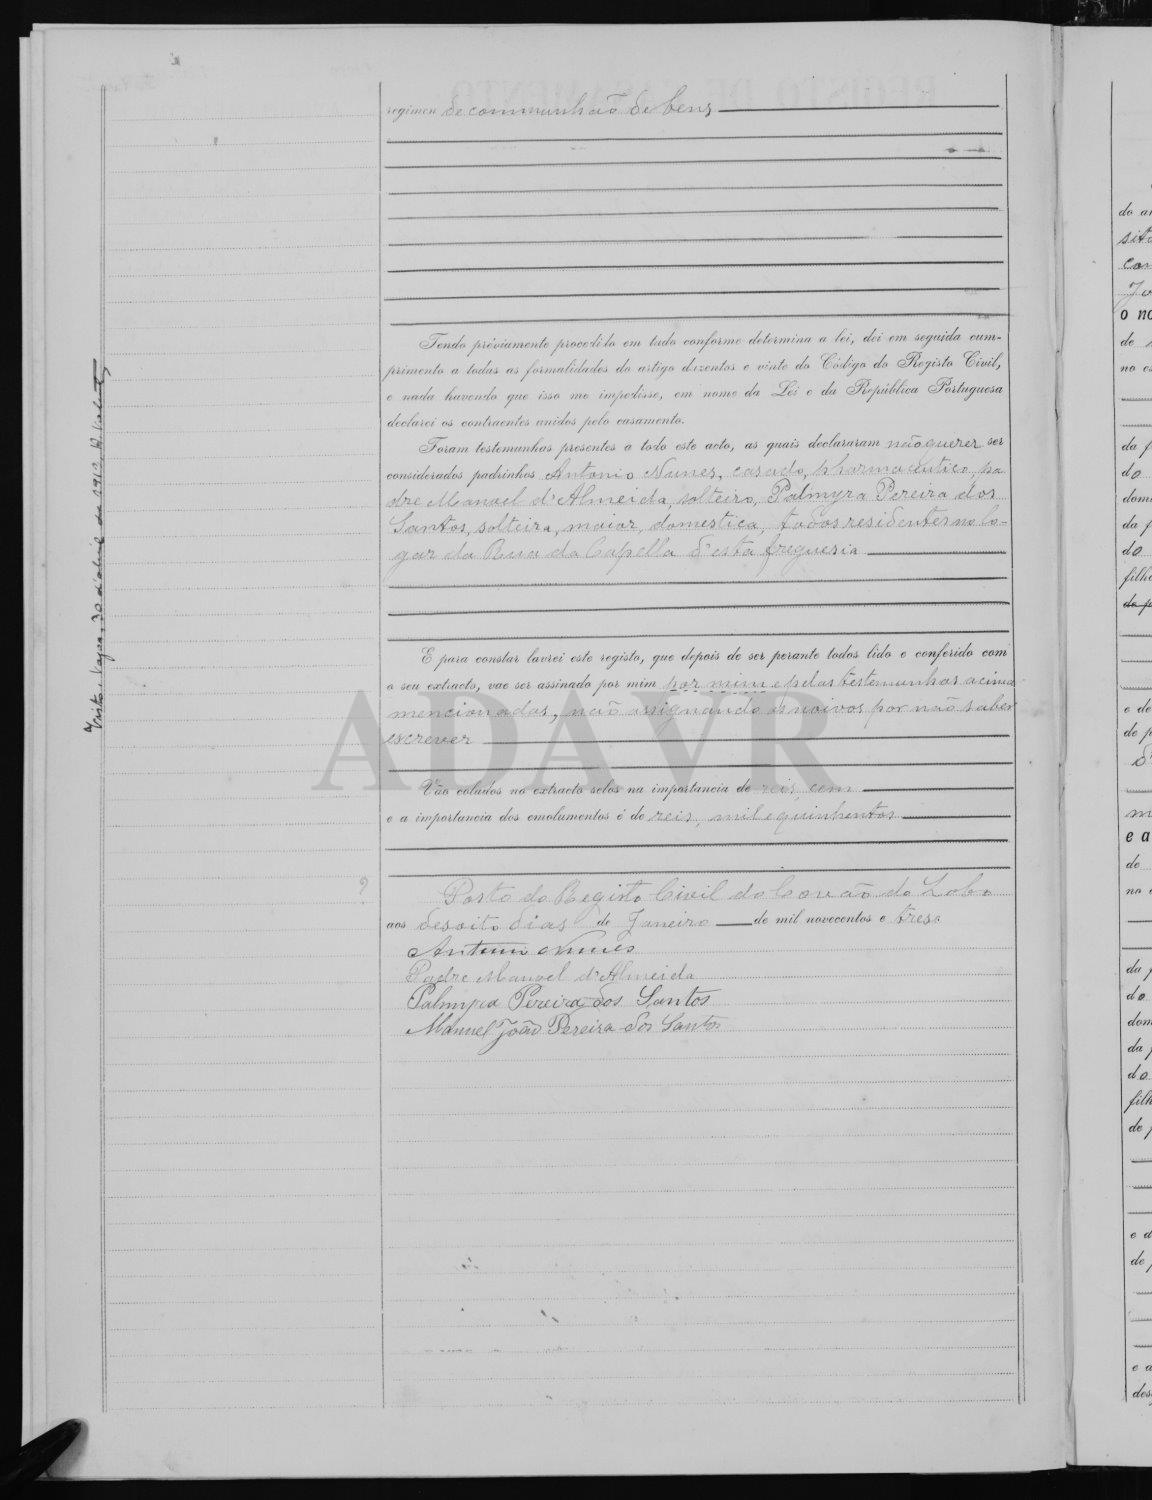 regimen de communhão de bens
Tendo préviamente procedido em tudo conforme determina a lei, dei em seguida cum-
primento a todas as formalidades do artigo duzentos e vinte do Código do Registo Civil,
e nada havendo que isso me impedisse, em nome da Lei e da República Portuguesa
declarei os contraentes unidos pelo casamento.
Foram testemunhas presentes a todo este acto, as quais declararam não querer ser
considerados padrinhos Antonio Nunes, casado, pharmaceutico, pa
dre Manoel d'Almeida, solteiro, Palmyra Pereira dos
Santos, solteira, maior, domestica, todos residentes no lo-
gar da Rua da Capella d'esta freguesia
E para constar lavrei este registo, que depois de ser perante todos lido e conferido com
o seu extracto, vae ser assinado por mim por mim e pelas testemunhas acima
mencionadas, não assignando os noivos por não saber
escrever
Vão colados no extracto selos na importancia de reis, cem
e a importancia dos emolumentos é de reis, mil e quinhentos
?
Posto do Registo Civil do Covão do Lobo
aos desoito dias de Janeiro de mil novecentos e trese
Antonio Nunes
Padre Manoel d'Almeida
Palmyra Pereira dos Santos
Manuel João Pereira dos Santos
Visto. Vagos, 30 d'abril de 1913.
ADAVR
do
sita
o no
de
da f
do
da f
do
filh
e de
de p
e a
de
da p
do
da p
do
de p
e d
de p
e a